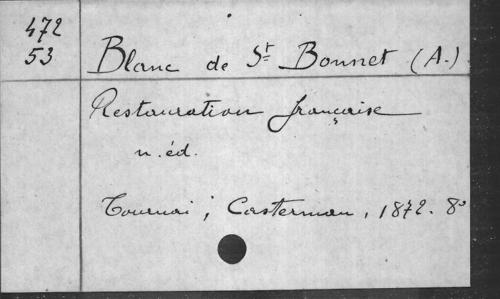 472
53
Blanc de St Bonnet (A.)
Restauration française
n. éd.
Tournai ; Casterman, 1872. 8°